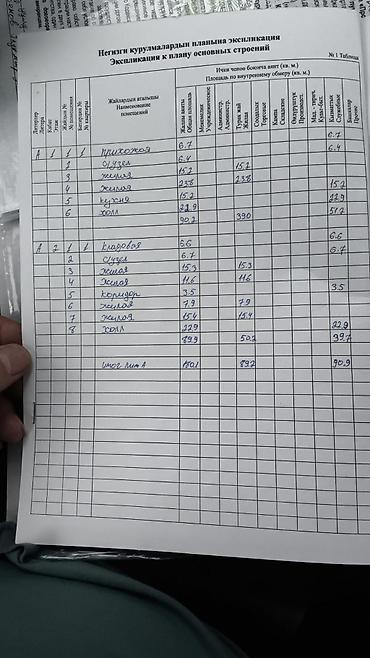 Негизги курулмалардын планына экспликация
Экспликация к плану основных строений
№ 1 Таблица
Литерлер Литера
Кабат Этаж
Жайдын № № помещения
Батирдин № № квартиры
Жайлардын аталышы Наименование помещений
Ички ченөө боюнча аянт (кв. м.)
Площадь по внутреннему обмеру (кв. м.)
Жалпы аянты Общая площадь
Мекемелик Учрежденческие
Администр. Администр.
Турак жай Жилая
Соодалык Торговые
Кампа Складские
Өндүрүштүк Производст.
Кызматтык Служебные
Башкалар Прочие
А 1 1 1 прихожая 6.7 6.7
2 с/узел 6.4 6.4
3 жилая 15.2 15.2
4 жилая 23.8 23.8
5 кухня 15.2 15.2
6 холл 22.9 22.9
90.2 39.0 51.2
А 2 1 1 кладовая 6.6 6.6
2 с/узел 6.7 6.7
3 жилая 15.3 15.3
4 жилая 11.6 11.6
5 коридор 3.5 3.5
6 жилая 7.9 7.9
7 жилая 15.4 15.4
8 холл 22.9 22.9
89.9 50.2 39.7
итог лит А 180.1 89.2 90.9